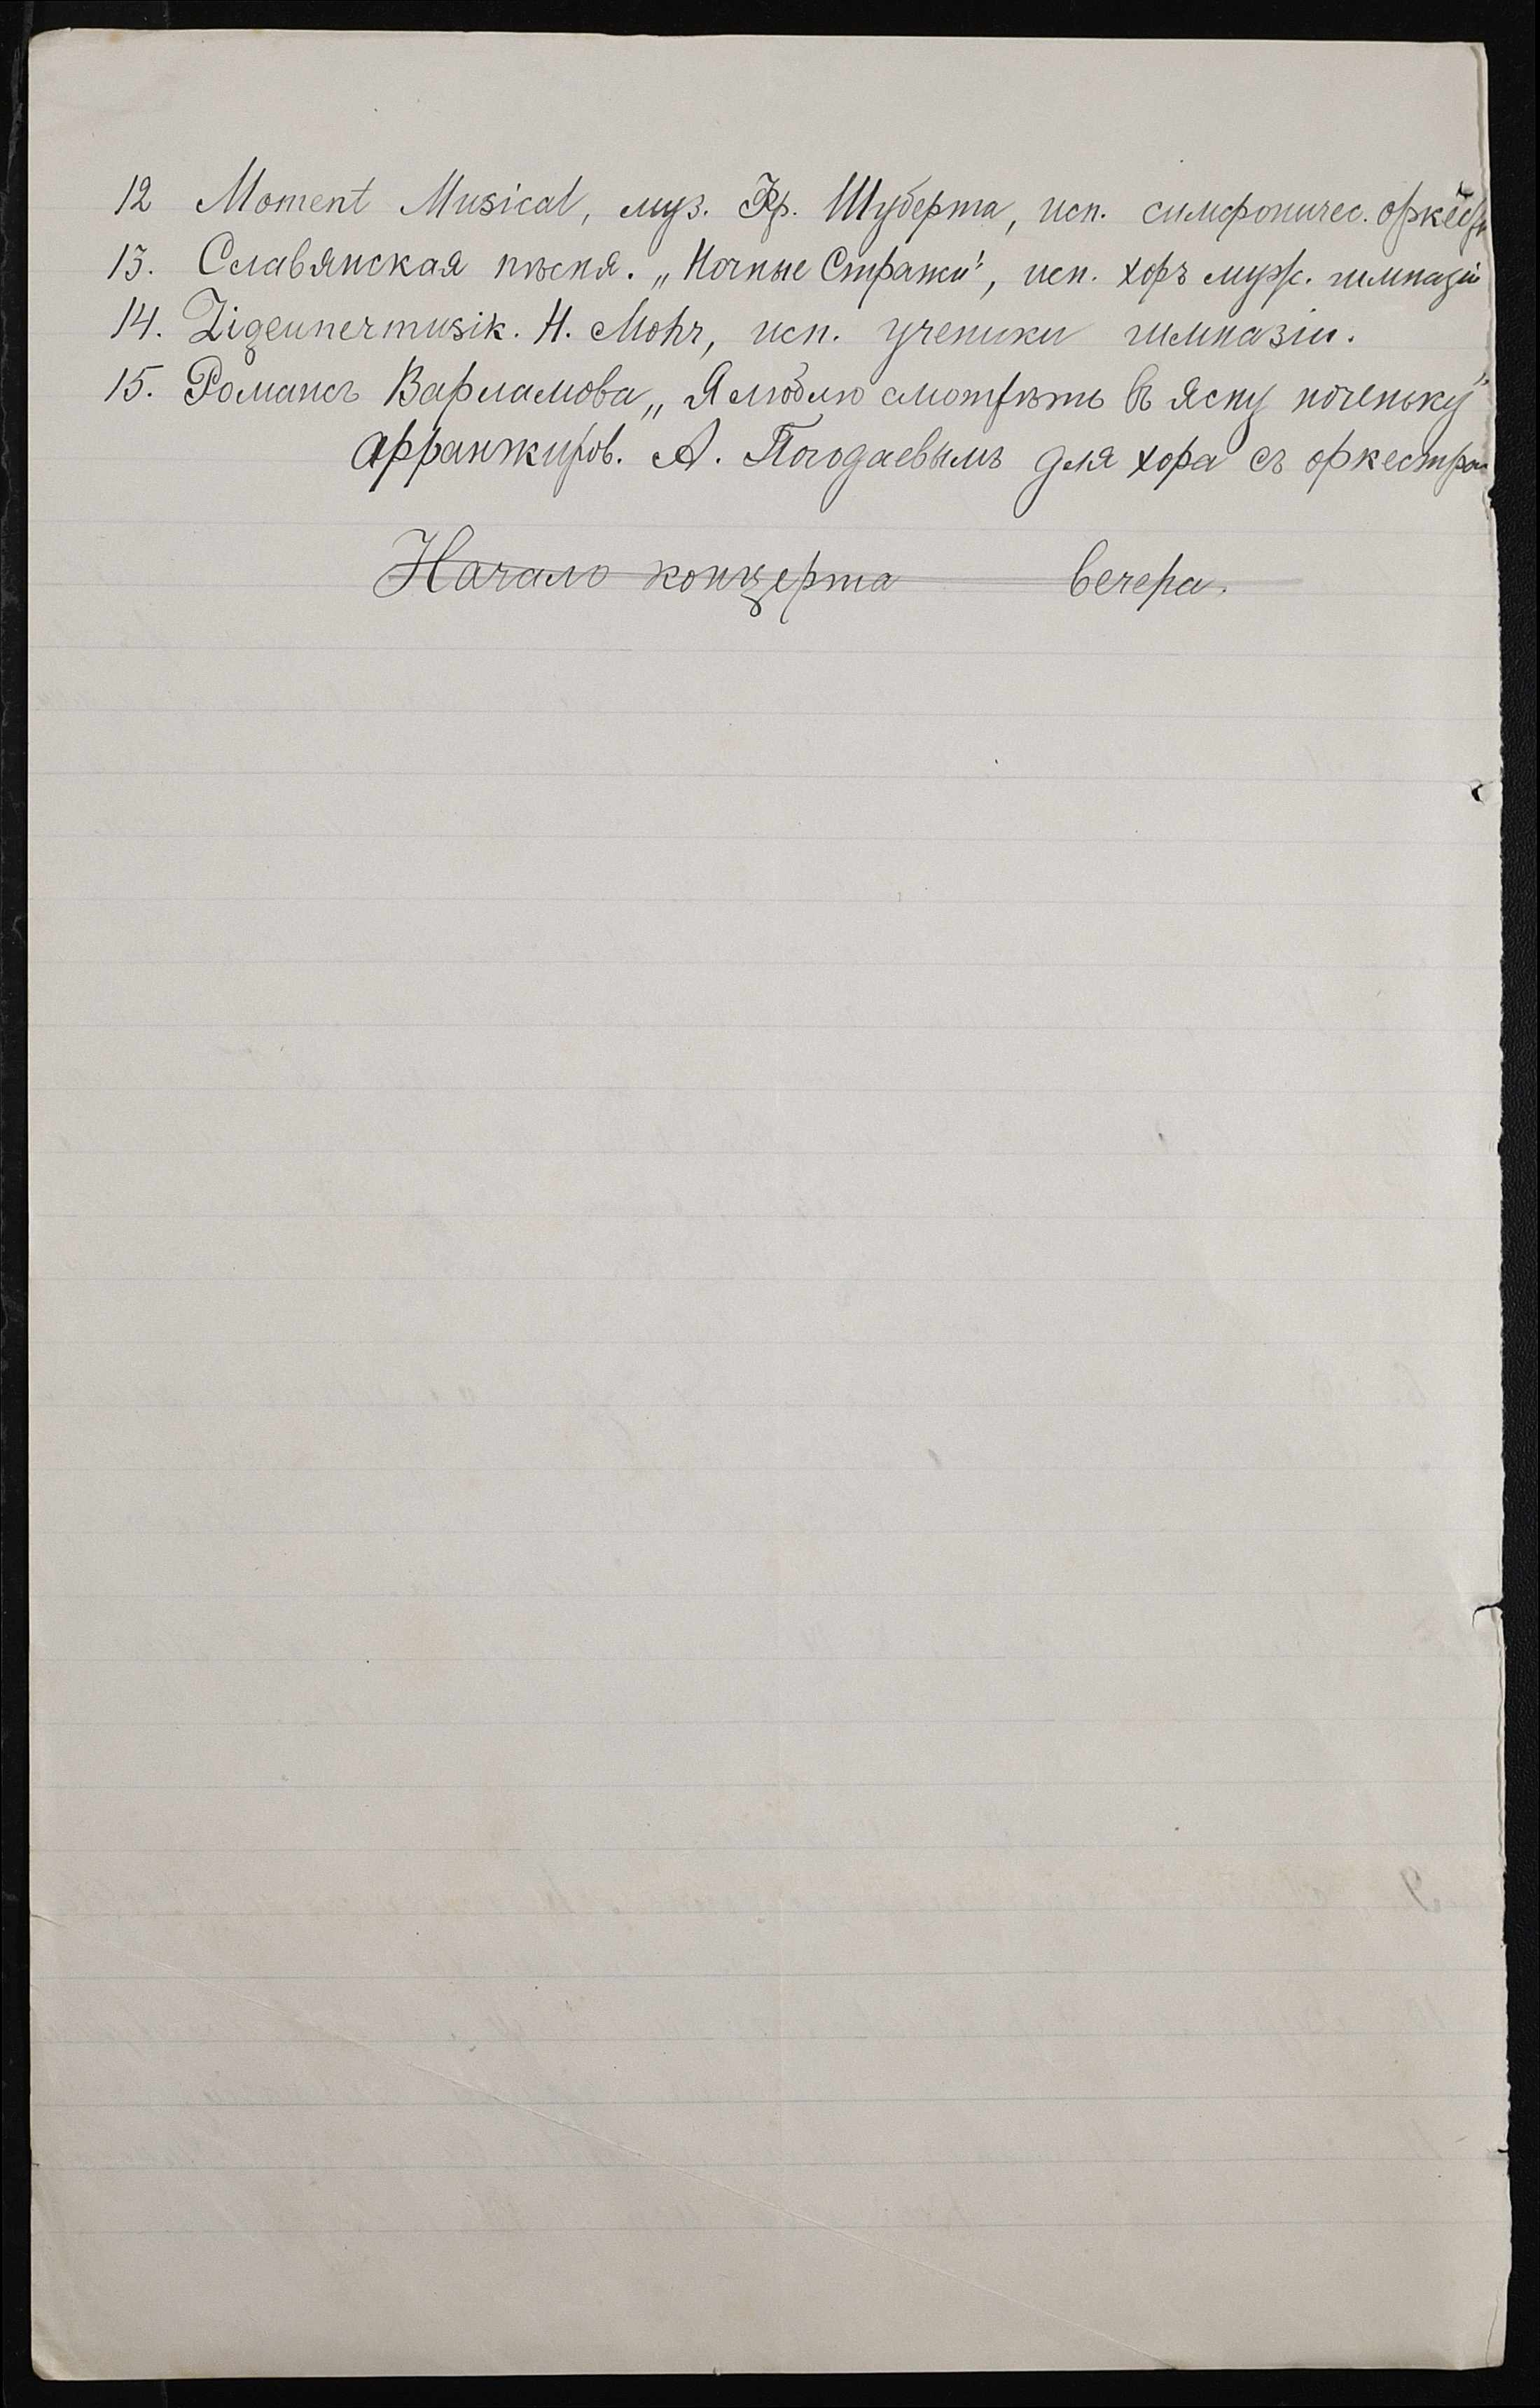 12 Moment Musical, муз. Фр. Шуберта, исп. симфоничес. оркестр
13. Славянская пѣсня. „Ночные Стражи", исп. хоръ муж. гимназіи
14. Zigeunermusik. H. Mohr, исп. ученики гимназіи.
15. Романсъ Варламова „Я люблю смотрѣть въ ясну ноченьку"
арранжиров. А. Погодаевымъ для хора съ оркестром
Начало концерта вечера.